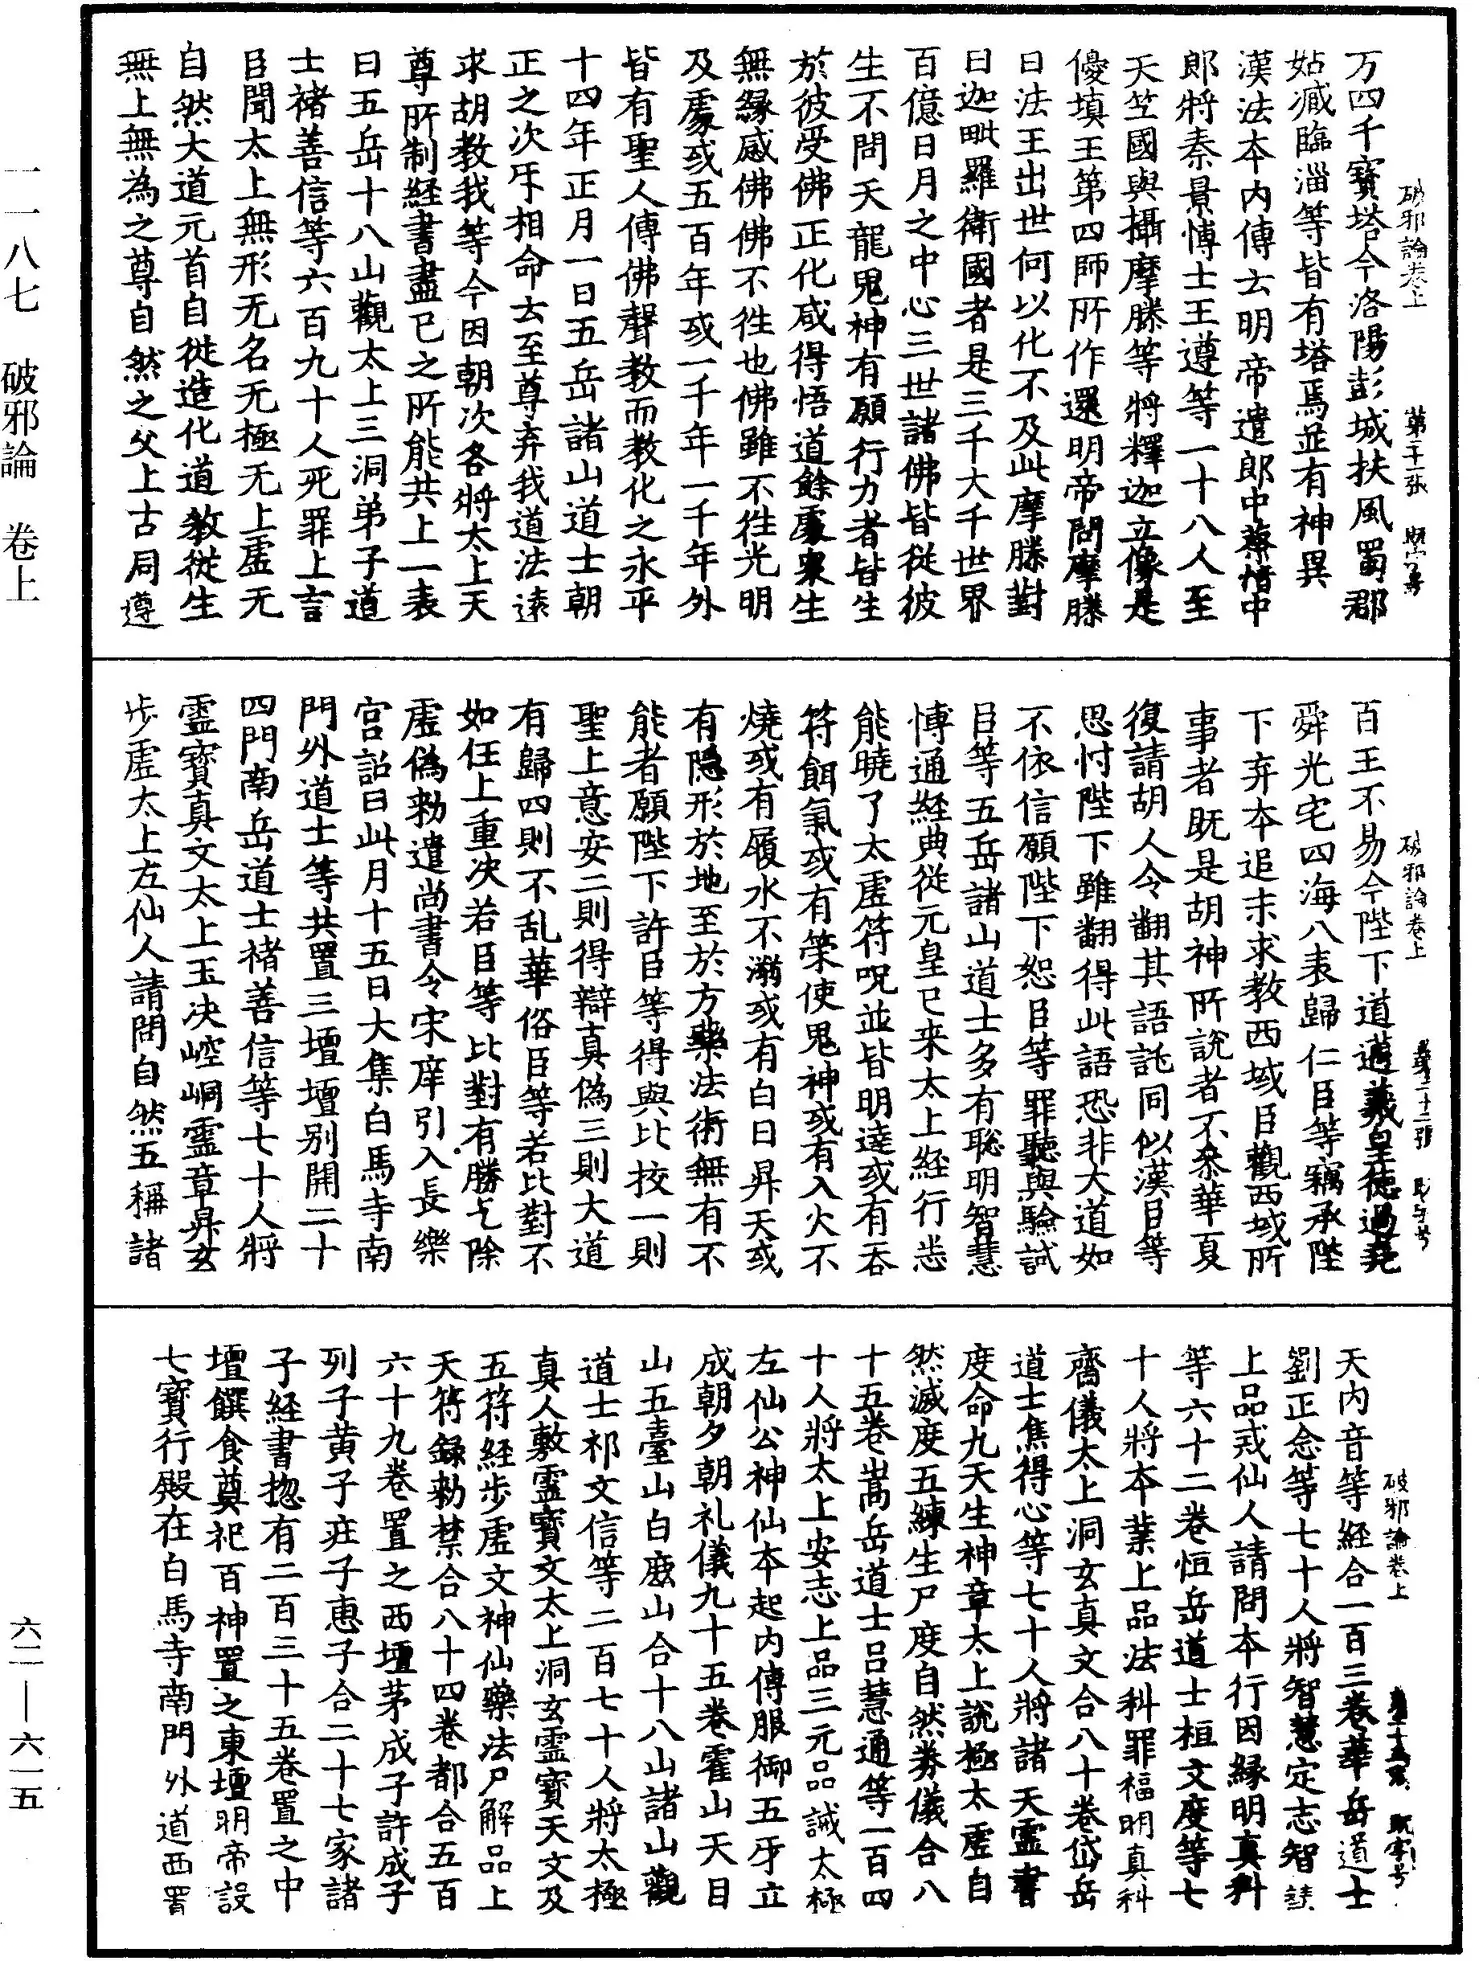 破邪論卷上
万四千寶塔今洛陽彭城扶風蜀郡
姑臧臨淄等皆有塔焉並有神異
漢法本內傳云明帝遣郎中蔡愔中
郎將秦景博士王遵等一十八人至
天竺國與攝摩騰等將釋迦立像是
優填王第四師所作還明帝問摩騰
曰法王出世何以化不及此摩騰對
曰迦毗羅衛國者是三千大千世界
百億日月之中心三世諸佛皆從彼
生不問天龍鬼神有願行力者皆生
於彼受佛正化咸得悟道餘處衆生
無緣感佛佛不往也佛雖不往光明
及處或五百年或一千年一千年外
皆有聖人傳佛聲教而教化之永平
十四年正月一日五岳諸山道士朝
正之次牙相命去至尊弃我道法遠
求胡教我等今因朝次各將太上天
尊所制經書盡已之所能共上一表
曰五岳十八山觀太上三洞弟子道
士褚善信等六百九十人死罪上言
臣聞太上無形无名无極无上虛无
自然大道元首自從造化道教從生
無上無為之尊自然之父上古同遵
破邪論卷上
百王不易今陛下道邁羲皇德過堯
舜光宅四海八表歸仁臣等竊承陛
下弃本追末求教西域臣觀西域所
事者旣是胡神所說者不叅華夏
復請胡人令翻其語託同似漢臣等
思忖陛下雖翻得此語恐非大道如
不依信願陛下恕臣等罪聽與驗試
臣等五岳諸山道士多有聡明智慧
博通經典從元皇已来太上經行悉
能曉了太虛符呪並皆明達或有吞
符餌氣或有策使鬼神或有入火不
燒或有履水不溺或有白日昇天或
有隱形於地至於方藥法術無有不
能者願陛下許臣等得與比挍一則
聖上意安二則得辯真偽三則大道
有歸四則不乱華俗臣等若比對不
如任上重决若臣等比對有勝乞除
虛偽勑遣尚書令宋庠引入長樂
宫詔曰此月十五日大集白馬寺南
門外道士等共置三壇壇別開二十
四門南岳道士褚善信等七十人將
靈寶真文太上玉决崆峒靈章昇玄
步虛太上左仙人請問自然五稱諸
破邪論卷上
天內音等經合一百三卷華岳道士
劉正念等七十人將智慧定志智慧
上品戒仙人請問本行因緣明真科
等六十二卷恒岳道士桓文度等七
十人將本業上品法科罪福明真科
齋儀太上洞玄真文合八十卷岱岳
道士焦得心等七十人將諸天靈書
度命九天生神章太上說極太虛自
然滅度五練生尸度自然券儀合八
十五卷嵩岳道士吕慧通等一百四
十人將太上安志上品三元品誡太極
左仙公神仙本起內傳服御五牙立
成朝夕朝礼儀九十五卷霍山天目
山五臺山白鹿山合十八山諸山觀
道士祁文信等二百七十人將太極
真人敷靈寶文太上洞玄靈寶天文及
五符經步虛文神仙藥法尸解品上
天符録勑禁合八十四卷都合五百
六十九卷置之西壇茅成子許成子
列子黄子莊子惠子合二十七家諸
子經書揔有二百三十五卷置之中
壇饌食奠祀百神置之東壇明帝設
七寶行殿在白馬寺南門外道西置
一一八七 破邪論 卷上
六二—六一五